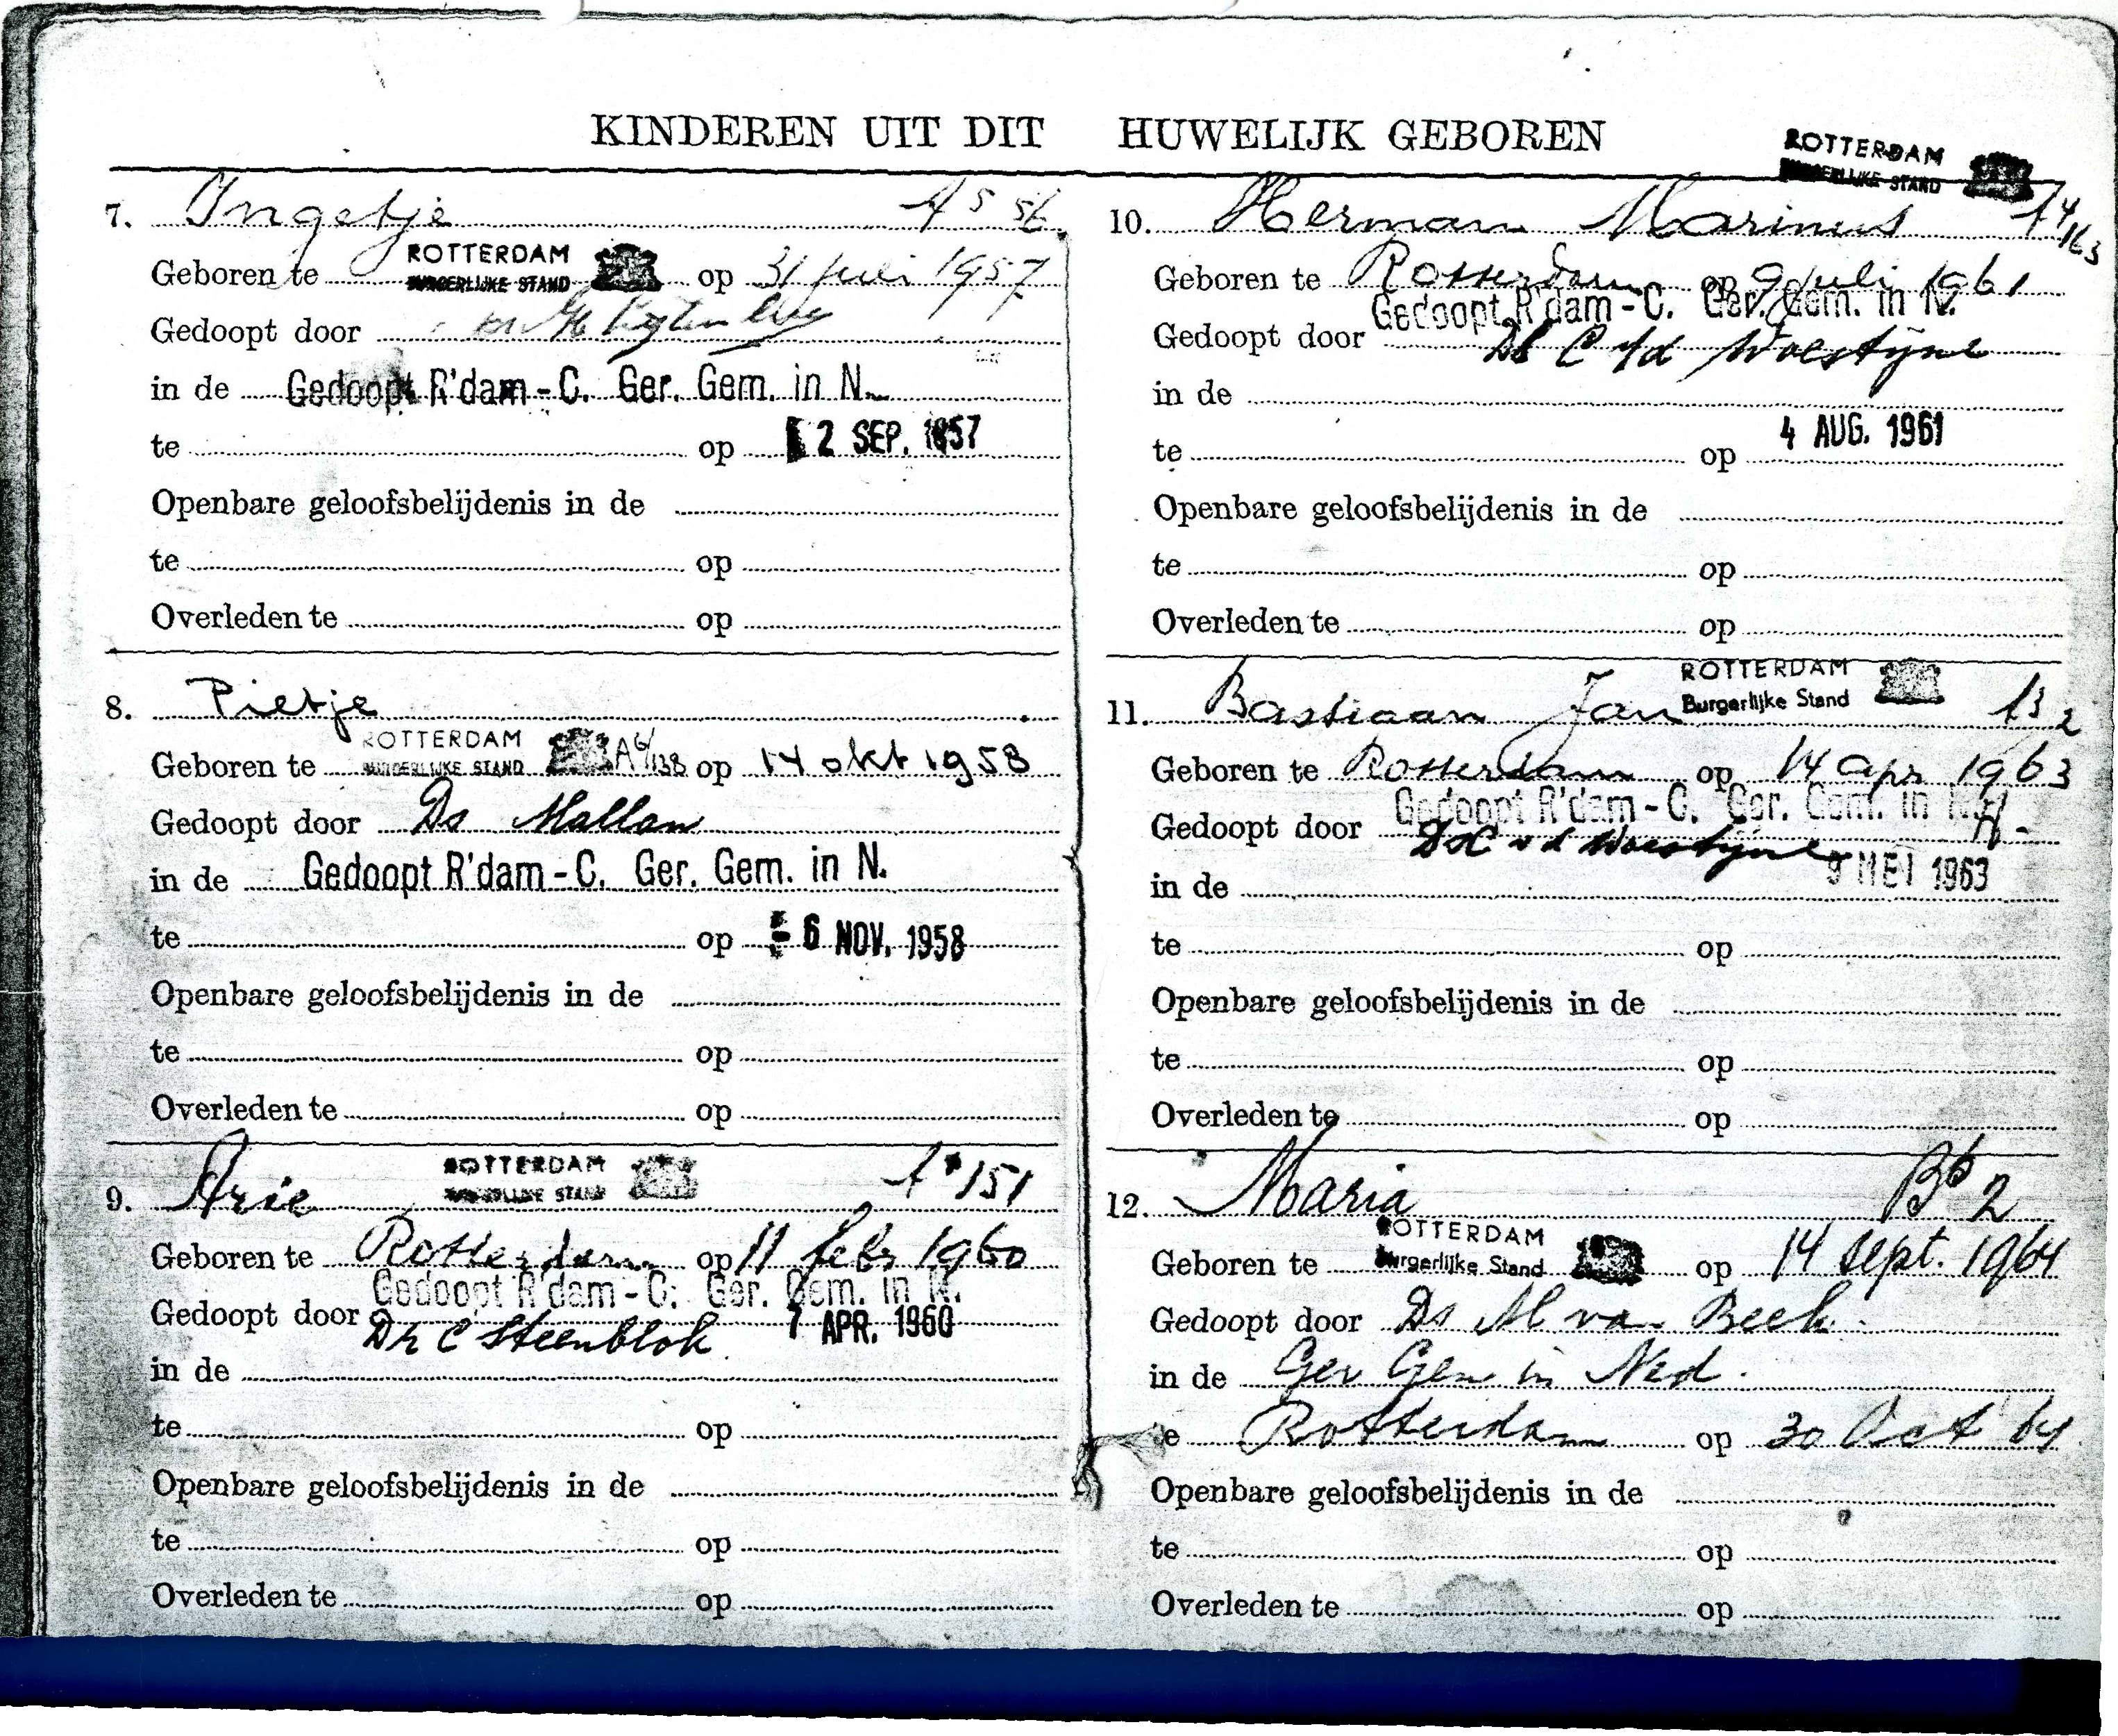 KINDEREN UIT DIT HUWELIJK GEBOREN
7. Ingetje A 5 56
ROTTERDAM
BURGERLIJKE STAND
Geboren te op 31 juli 1957
Gedoopt door
in de Gedoopt R'dam - C. Ger. Gem. in N.
te op 2 SEP. 1957
Openbare geloofsbelijdenis in de
te op
Overleden te op
8. Pietje
ROTTERDAM
BURGERLIJKE STAND
Geboren te A6/138 op 14 okt 1958
Gedoopt door Ds Mallan
in de Gedoopt R'dam - C. Ger. Gem. in N.
te op - 6 NOV. 1958
Openbare geloofsbelijdenis in de
te op
Overleden te op
ROTTERDAM
BURGERLIJKE STAND
9. Arie 151
Geboren te Rotterdam op 11 febr 1960
Gedoopt R'dam - C. Ger. Gem. in N.
Gedoopt door Dr C Steenblok 7 APR. 1960
in de
te op
Openbare geloofsbelijdenis in de
te op
Overleden te op
ROTTERDAM
BURGERLIJKE STAND
10. Herman Marinus A4/163
Geboren te Rotterdam op 9 juli 1961
Gedoopt R'dam - C. Ger. Gem. in N.
Gedoopt door Ds C v/d Woestijne
in de
te op 4 AUG. 1961
Openbare geloofsbelijdenis in de
te op
Overleden te op
ROTTERDAM
Burgerlijke Stand
11. Bastiaan Jan A3 2
Geboren te Rotterdam op 14 apr 1963
Gedoopt R'dam - C. Ger. Gem. in N.
Gedoopt door Ds C v d Woestijne
9 MEI 1963
in de
te op
Openbare geloofsbelijdenis in de
te op
Overleden te op
12. Maria B6 2
ROTTERDAM
Burgerlijke Stand
Geboren te op 14 sept. 1964
Gedoopt door Ds M van Beek
in de Ger Gem in Ned.
te Rotterdam op 30 Oct 64
Openbare geloofsbelijdenis in de
te op
Overleden te op